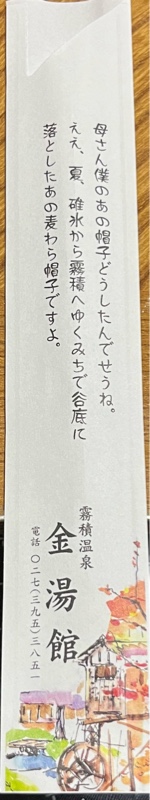 母さん僕のあの帽子どうしたんでせうね。
ええ、夏、碓氷から霧積へゆくみちで谷底に
落としたあの麦わら帽子ですよ。
霧積温泉
金湯館
電話 〇二七(三九五)三八五一